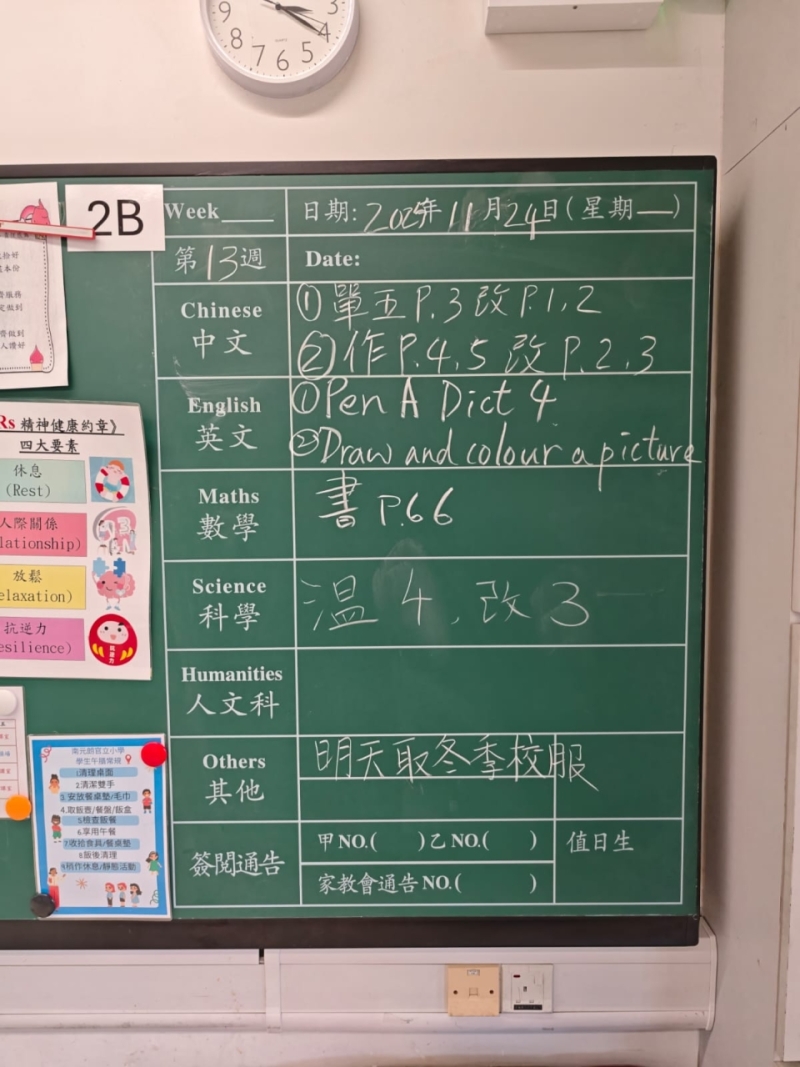 9
3
8
4
7 6 5
2B
Week
日期: 2025年 11月24日(星期一)
第13週
Date:
Chinese
中文
①單五 P.3 改 P.1,2
②作 P.4,5 改 P.2,3
English
英文
①Pen A Dict 4
②Draw and colour a picture
Maths
數學
書 P.66
Science
科學
溫 4, 改 3
Humanities
人文科
Others
其他
明天取冬季校服
簽閱通告
甲NO.( )乙NO.( )
值日生
家教會通告NO.( )
Rs 精神健康約章》
四大要素
休息
(Rest)
人際關係
lationship)
放鬆
elaxation)
抗逆力
esilience)
學生午膳常規
1.清理桌面
2.清潔雙手
3.安放餐桌墊/毛巾
4.取飯壺/餐盤/飯盒
5.檢查飯餐
6.享用午餐
7.收拾食具/餐桌墊
8.飯後清理
9.稍作休息/靜態活動